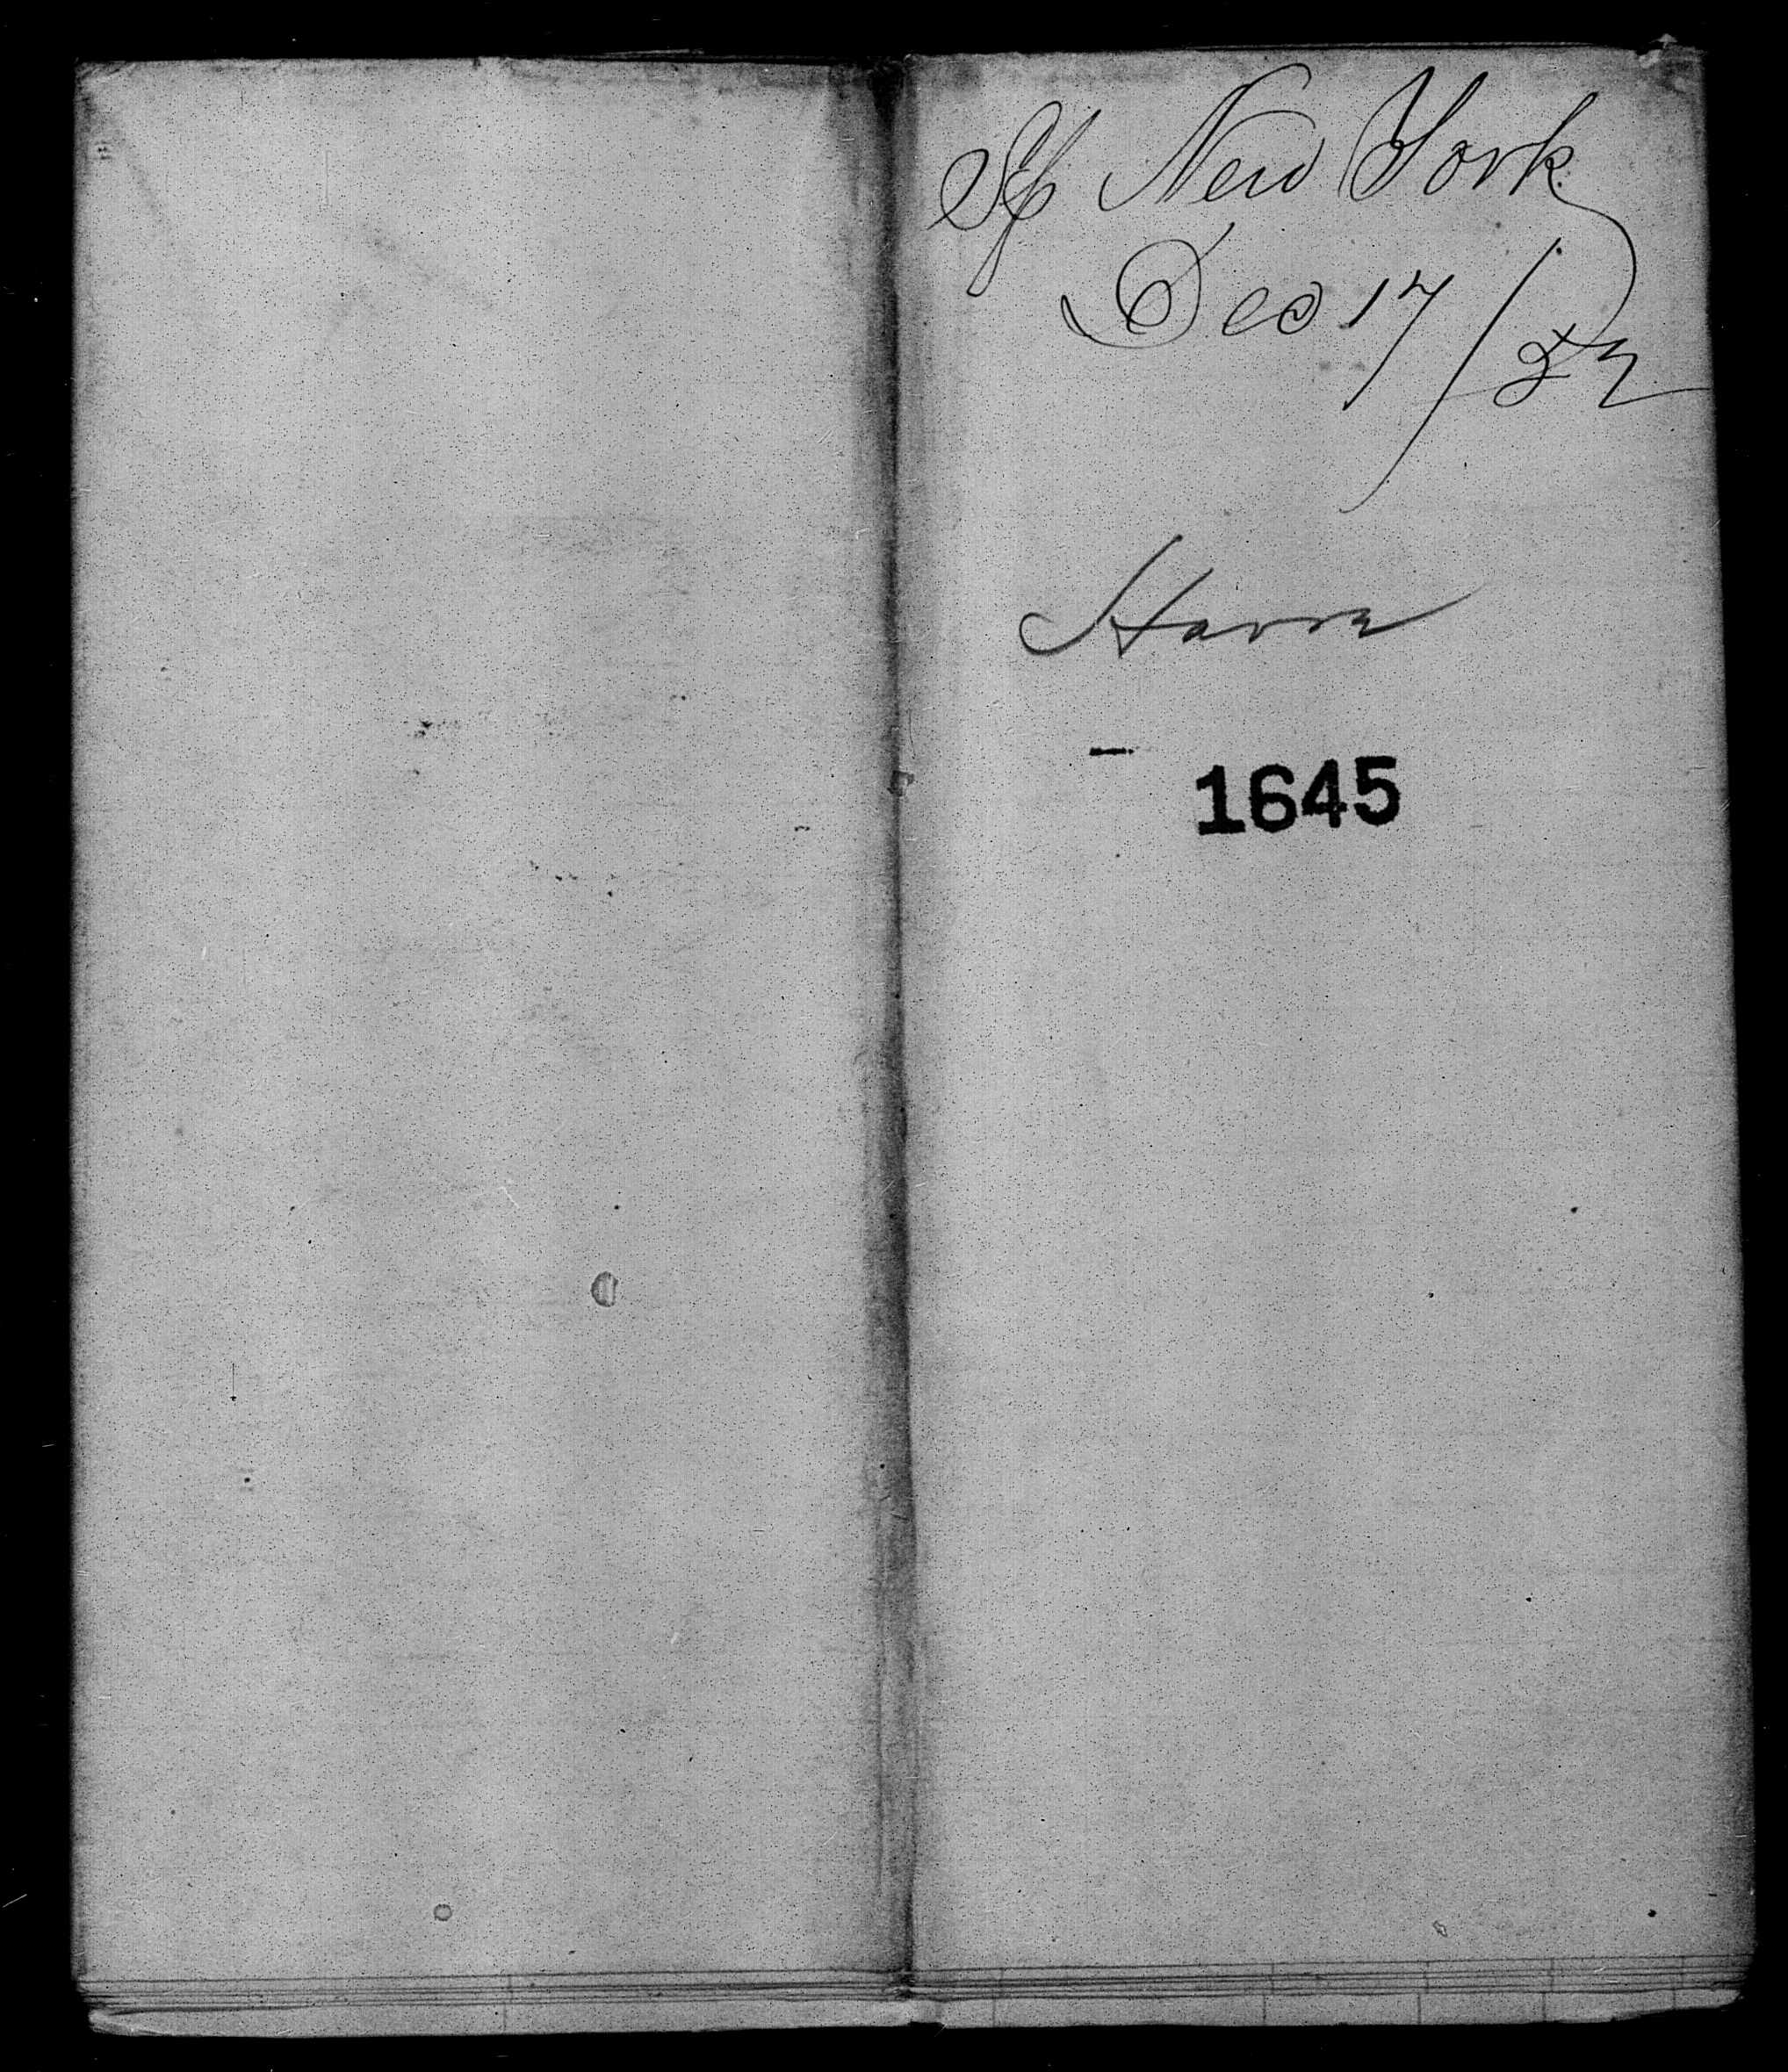 Sp New York
Dec 17/52
Havre
1645